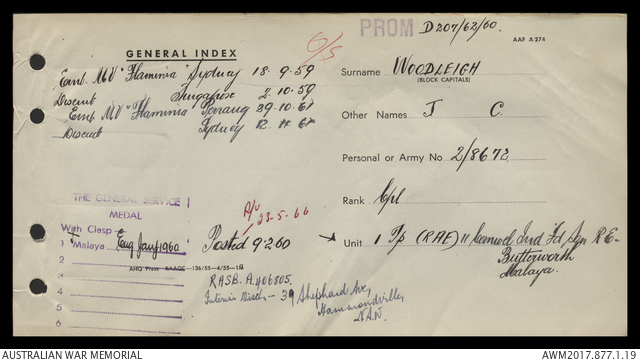 PROM D207/62/60.
O/S
AAF A 274
GENERAL INDEX
Emb MV "Flaminia" Sydney 18-9-59
Disemb Singapore 2-10-59
Emb MV "Flaminia" Penang 29.10.61
Disemb Sydney 12. 11. 61
Surname WOODLEIGH
(BLOCK CAPITALS)
Other Names J C.
Personal or Army No. 2/8672
Rank Cpl
Unit 1 Tp (RAE) 11 Ind Fd Sqn R E.
Butterworth
Malaya.
THE GENERAL SERVICE
MEDAL
With Clasp
1 Malaya Eng Jan/1960
2
3
4
5
6
R/U
23-5-66
Posted 9.2.60
AHQ Press RAAOC-136/55-4/55-1M
RASB. A406805.
39 Shephard Ave,
Hammondville,
AUSTRALIAN WAR MEMORIAL
AWM2017.877.1.19